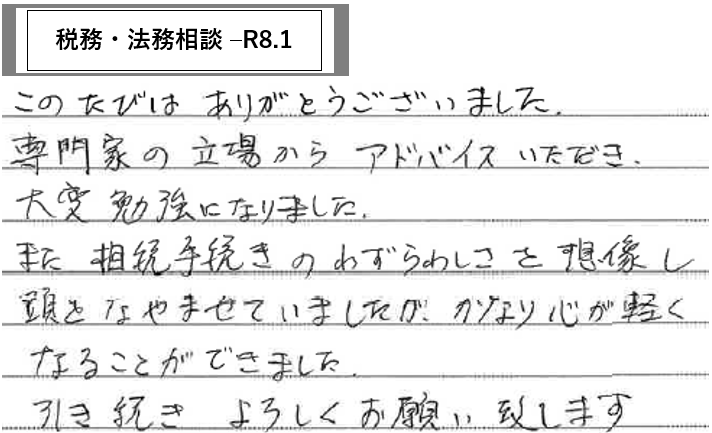 税務・法務相談 –R8.1
このたびは ありがとうございました.
専門家の 立場から アドバイス いただき.
大変 勉強になりました.
また 相続手続きの わずらわしさを 想像し
頭を なやませていましたが. かなり 心が 軽く
なることが できました.
引き続き よろしく お願い 致します